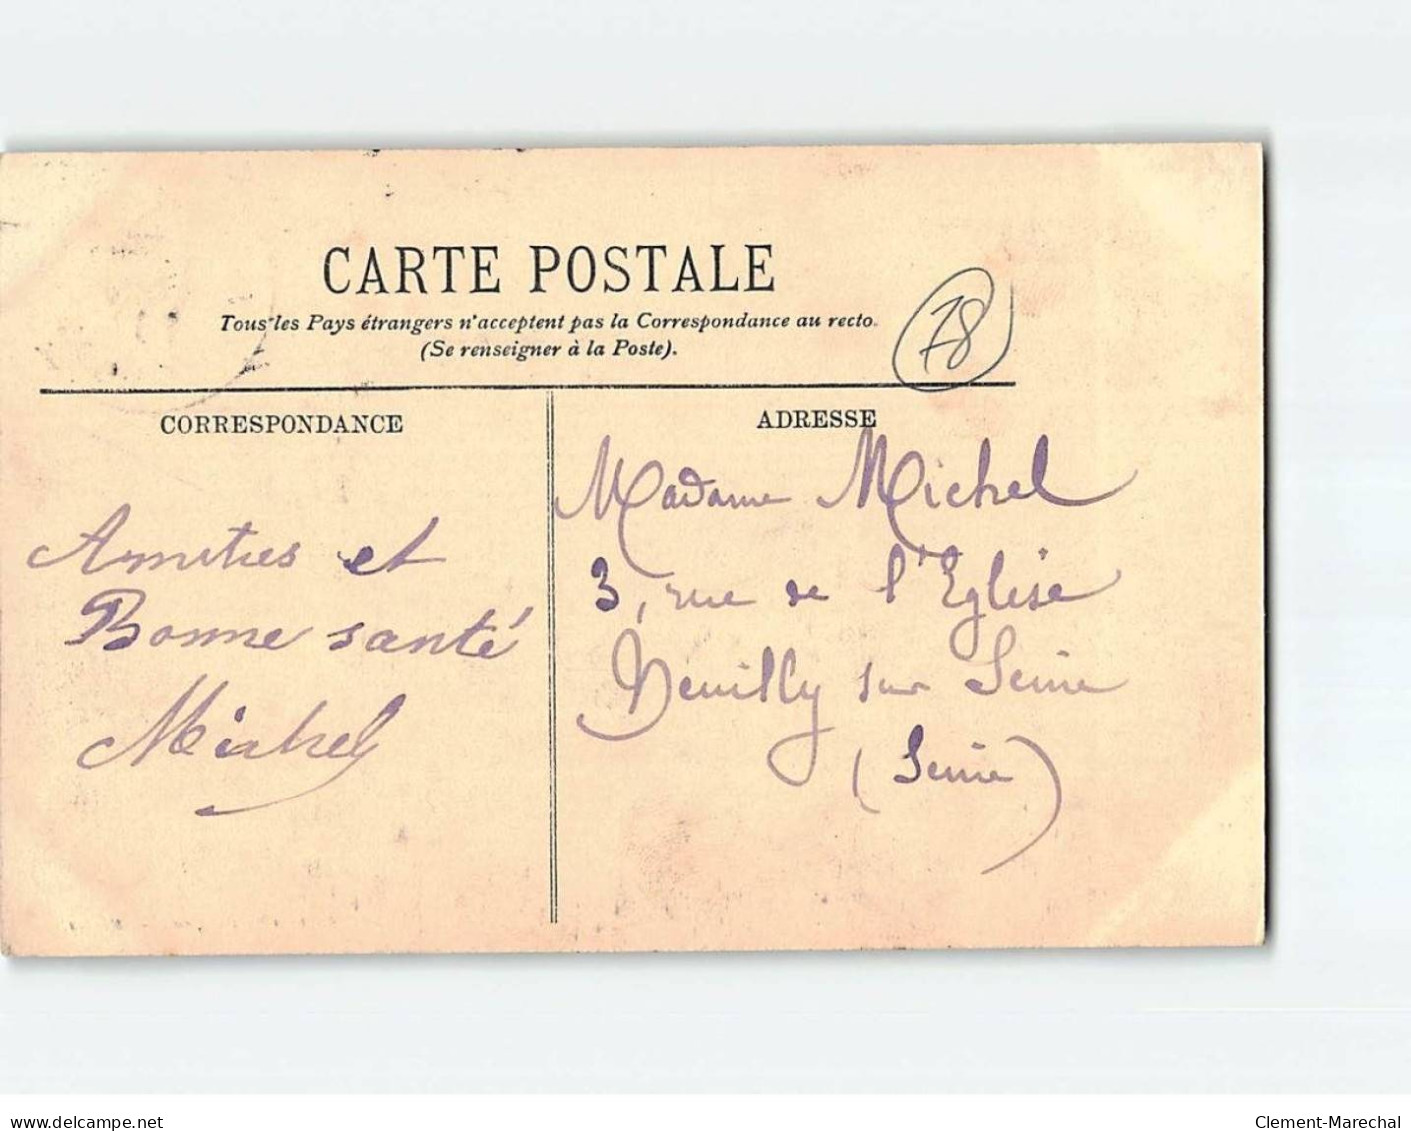 CARTE POSTALE
Tous les Pays étrangers n'acceptent pas la Correspondance au recto.
(Se renseigner à la Poste).
78
CORRESPONDANCE
ADRESSE
Amitiés et
Bonne santé
Michel
Madame Michel
3, rue de l'Eglise
Neuilly sur Seine
(Seine)
www.delcampe.net
Clement-Marechal